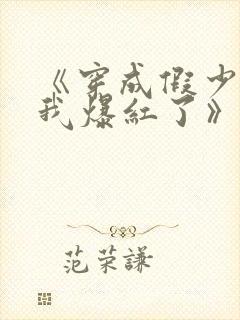 《穿成假少
我爆红了》
范荣谦